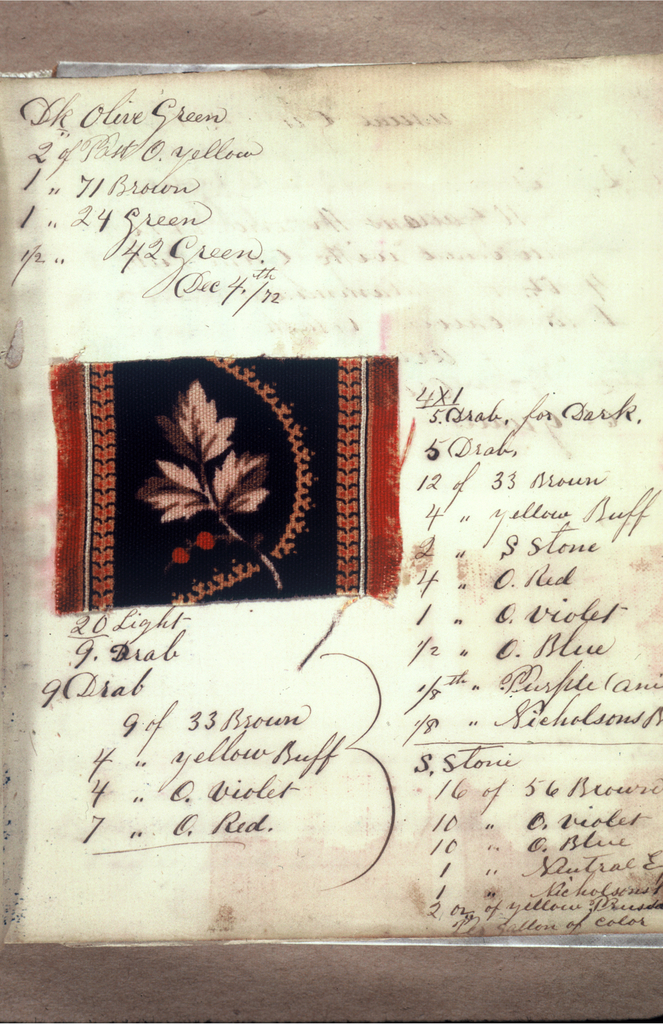 Dk Olive Green
2 of Patt O. yellow
1 " 71 Brown
1 " 24 Green
1/2 " 42 Green.
Dec 4th/72
20 Light
9. Drab
9 Drab
9 of 33 Brown
4 " yellow Buff
4 " O. violet
7 " O. Red.
4X1
5. Drab. for Dark.
5 Drab.
12 of 33 Brown
4 " yellow Buff
2 " S Stone
4 " O. Red
1 " O. violet
1/2 " O. Blue
1/8th " Purple (ani
1/8 " Nicholsons B
S. Stone
16 of 56 Brown
10 " O. violet
10 " O. Blue
1 " Neutral E
1 " Nicholsons
2 oz of yellow Prussia
Per Gallon of color